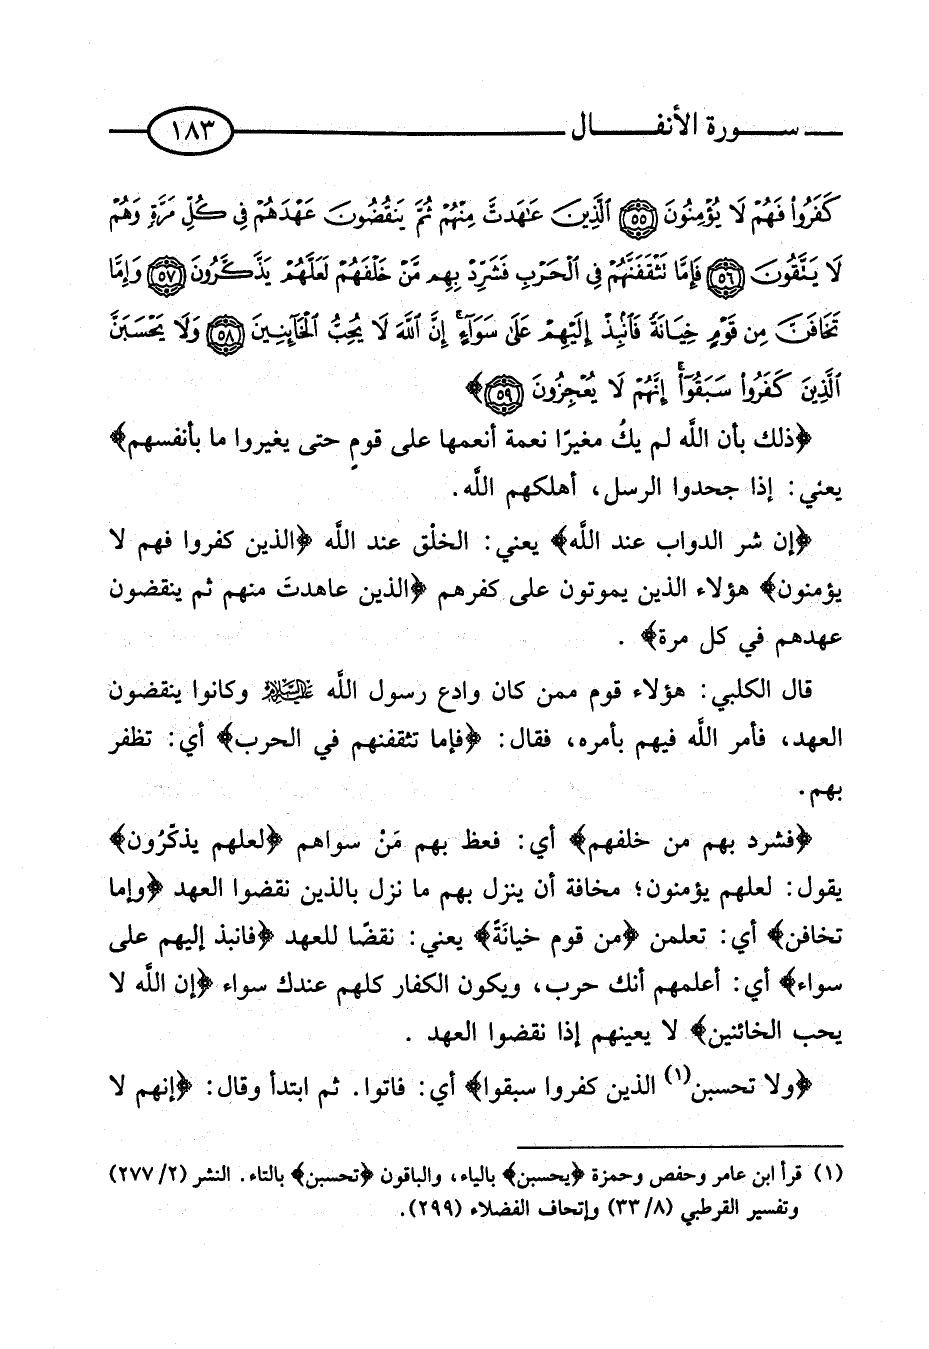 سورة الأنفال ١٨٣
كَفَرُوا۟ فَهُمْ لَا يُؤْمِنُونَ ٥٥ ٱلَّذِينَ عَـٰهَدتَّ مِنْهُمْ ثُمَّ يَنقُضُونَ عَهْدَهُمْ فِى كُلِّ مَرَّةٍ وَهُمْ
لَا يَتَّقُونَ ٥٦ فَإِمَّا تَثْقَفَنَّهُمْ فِى ٱلْحَرْبِ فَشَرِّدْ بِهِم مَّنْ خَلْفَهُمْ لَعَلَّهُمْ يَذَّكَّرُونَ ٥٧ وَإِمَّا
تَخَافَنَّ مِن قَوْمٍ خِيَانَةً فَٱنۢبِذْ إِلَيْهِمْ عَلَىٰ سَوَآءٍ ۚ إِنَّ ٱللَّهَ لَا يُحِبُّ ٱلْخَآئِنِينَ ٥٨ وَلَا يَحْسَبَنَّ
ٱلَّذِينَ كَفَرُوا۟ سَبَقُوٓا۟ ۚ إِنَّهُمْ لَا يُعْجِزُونَ ٥٩﴾
﴿ذلك بأن اللَّه لم يكُ مغيرًا نعمة أنعمها على قومٍ حتى يغيروا ما بأنفسهم﴾
يعني: إذا جحدوا الرسل، أهلكهم اللَّه.
﴿إن شر الدواب عند اللَّه﴾ يعني: الخلْق عند اللَّه ﴿الذين كفروا فهم لا
يؤمنون﴾ هؤلاء الذين يموتون على كفرهم ﴿الذين عاهدتَ منهم ثم ينقضون
عهدهم في كل مرة﴾ .
قال الكلبي: هؤلاء قوم ممن كان وادع رسول اللَّه عليه السلام وكانوا ينقضون
العهد، فأمر اللَّه فيهم بأمره، فقال: ﴿فإما تثقفنهم في الحرب﴾ أي: تظفر
بهم.
﴿فشرد بهم من خلفهم﴾ أي: فعظ بهم مَنْ سواهم ﴿لعلهم يذكّرُون﴾
يقول: لعلهم يؤمنون؛ مخافة أن ينزل بهم ما نزل بالذين نقضوا العهد ﴿وإما
تخافن﴾ أي: تعلمن ﴿من قوم خيانَةً﴾ يعني: نقضًا للعهد ﴿فانبذ إليهم على
سواء﴾ أي: أعلمهم أنك حرب، ويكون الكفار كلهم عندك سواء ﴿إن اللَّه لا
يحب الخائنين﴾ لا يعينهم إذا نقضوا العهد .
﴿ولا تحسبن(١) الذين كفروا سبقوا﴾ أي: فاتوا. ثم ابتدأ وقال: ﴿إنهم لا
(١) قرأ ابن عامر وحفص وحمزة ﴿يحسبن﴾ بالياء، والباقون ﴿تحسبن﴾ بالتاء. النشر (٢/ ٢٧٧)
وتفسير القرطبي (٨/ ٣٣) وإتحاف الفضلاء (٢٩٩).